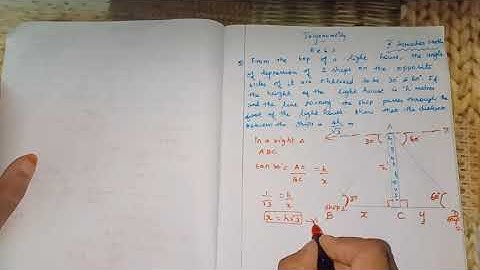 Trigonometry
Ex 6.3
5 From the top of a light house, the angle
of depression of 2 ships on the opposite
sides of it are observed to be 30° & 60°. If
the height of the light house is h meters
and the line joining the ship passes through the
foot of the light house show that the distance
between the ships is 4h/√3 m
In a right Δ
ABC
tan 30° = AC/BC = h/x
1/√3 = h/x
x = h√3
A
30°
60°
h
ship 1
30°
60°
B
x
C
y
D